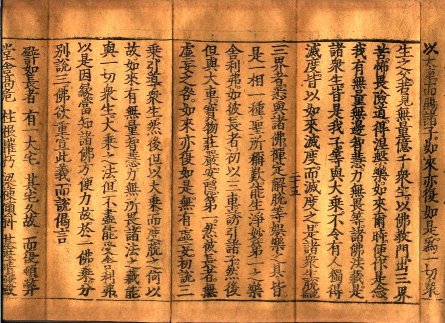 以大車而賜諸子如來亦復如是為一切衆
生之父若見無量億千衆生以佛教門出三界
苦怖畏險道得涅槃樂如來爾時便作是念
我有無量無邊智慧力無畏等諸佛法藏是
諸衆生皆是我子等與大乘不令有人獨得
滅度皆以如來滅度而滅度之是諸衆生脫
二十五
三界者悉與諸佛禪定解脫等娛樂之具皆
是一相一種聖所稱歎能生淨妙第一之樂
舍利弗如彼長者初以三車誘引諸子然後
但與大車寶物莊嚴安隱第一然彼長者無
虛妄之咎如來亦復如是無有虛妄初說三
乘引導衆生然後但以大乘而度脫之何以
故如來有無量智慧力無所畏諸法之藏能
與一切衆生大乘之法但不盡能受舍利弗
以是因緣當知諸佛方便力故於一佛乘分
別說三佛欲重宣此義而說偈言
譬如長者 有一大宅 其宅久故 而復頓弊
堂舍高危 柱根摧朽 梁棟傾斜 基陛隤毀